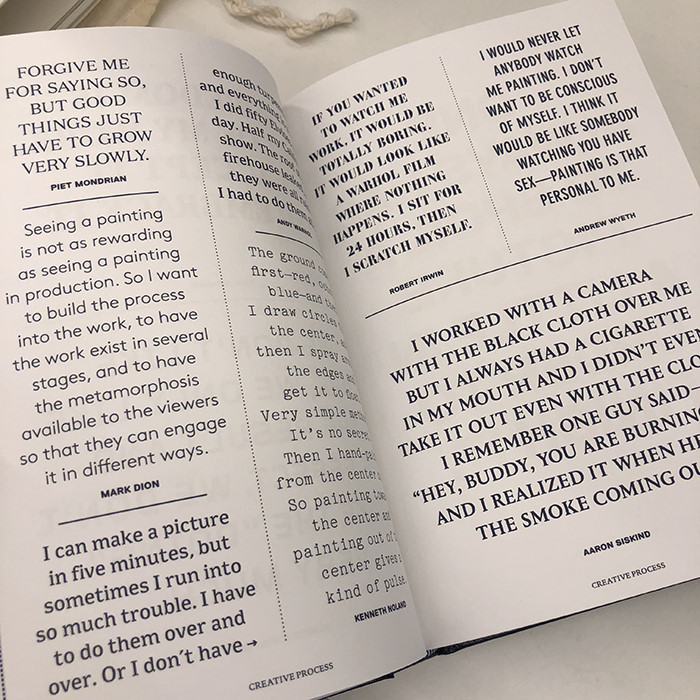 FORGIVE ME
FOR SAYING SO,
BUT GOOD
THINGS JUST
HAVE TO GROW
VERY SLOWLY.
PIET MONDRIAN
Seeing a painting
is not as rewarding
as seeing a painting
in production. So I want
to build the process
into the work, to have
the work exist in several
stages, and to have
the metamorphosis
available to the viewers
so that they can engage
it in different ways.
MARK DION
I can make a picture
in five minutes, but
sometimes I run into
so much trouble. I have
to do them over and
over. Or I don't have →
enough
and everything
I did fifty
day. Half my
show. The
firehouse
they were all
I had to do them
ANDY
The ground
first—red,
blue—and
I draw circles
the center,
then I spray
the edges
get it to
Very simple
It's no
Then I
from the center
So painting
the center and
painting out of
center gives
kind of pulse
KENNETH NOLAND
CREATIVE PROCESS
IF YOU WANTED
TO WATCH ME
WORK, IT WOULD BE
TOTALLY BORING.
IT WOULD LOOK LIKE
A WARHOL FILM
WHERE NOTHING
HAPPENS. I SIT FOR
24 HOURS, THEN
I SCRATCH MYSELF.
ROBERT IRWIN
I WOULD NEVER LET
ANYBODY WATCH
ME PAINTING. I DON'T
WANT TO BE CONSCIOUS
OF MYSELF. I THINK IT
WOULD BE LIKE SOMEBODY
WATCHING YOU HAVE
SEX—PAINTING IS THAT
PERSONAL TO ME.
ANDREW WYETH
I WORKED WITH A CAMERA
WITH THE BLACK CLOTH OVER ME
BUT I ALWAYS HAD A CIGARETTE
IN MY MOUTH AND I DIDN'T EVEN
TAKE IT OUT EVEN WITH THE
I REMEMBER ONE GUY SAID
"HEY, BUDDY, YOU ARE
AND I REALIZED IT WHEN
THE SMOKE COMING
AARON SISKIND
CREATIVE PROCESS